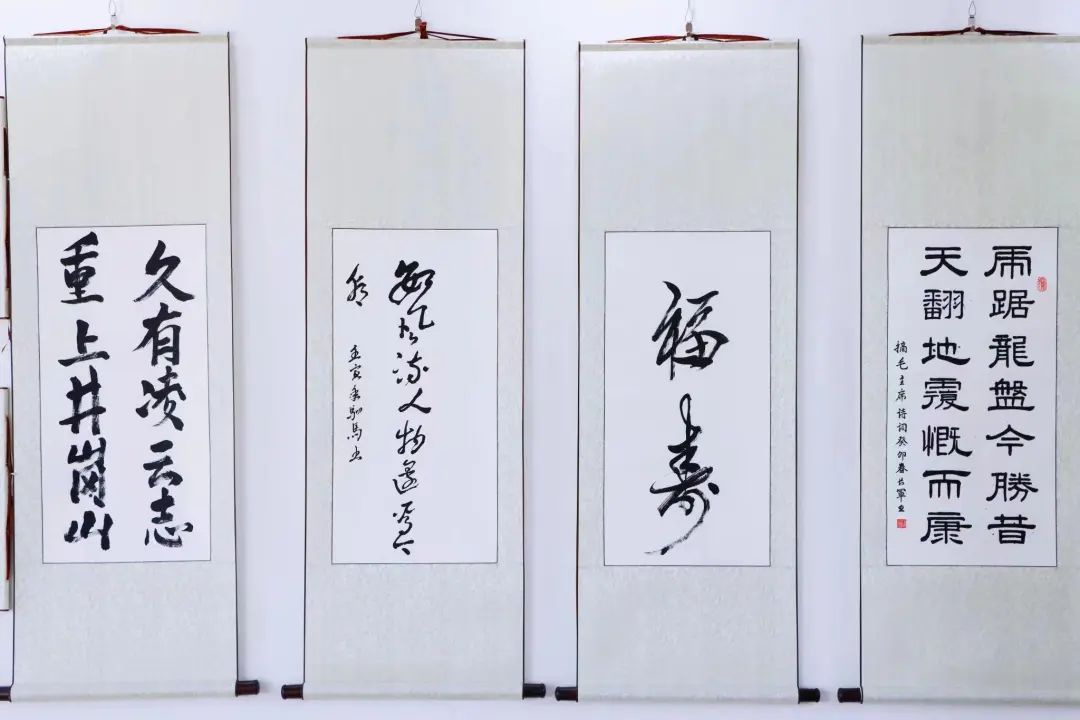 久有凌云志
重上井岗山
數风流人物還看今
朝
壬寅
福寿
虎踞龍盤今勝昔
天翻地覆慨而康
摘毛主席诗词癸卯春